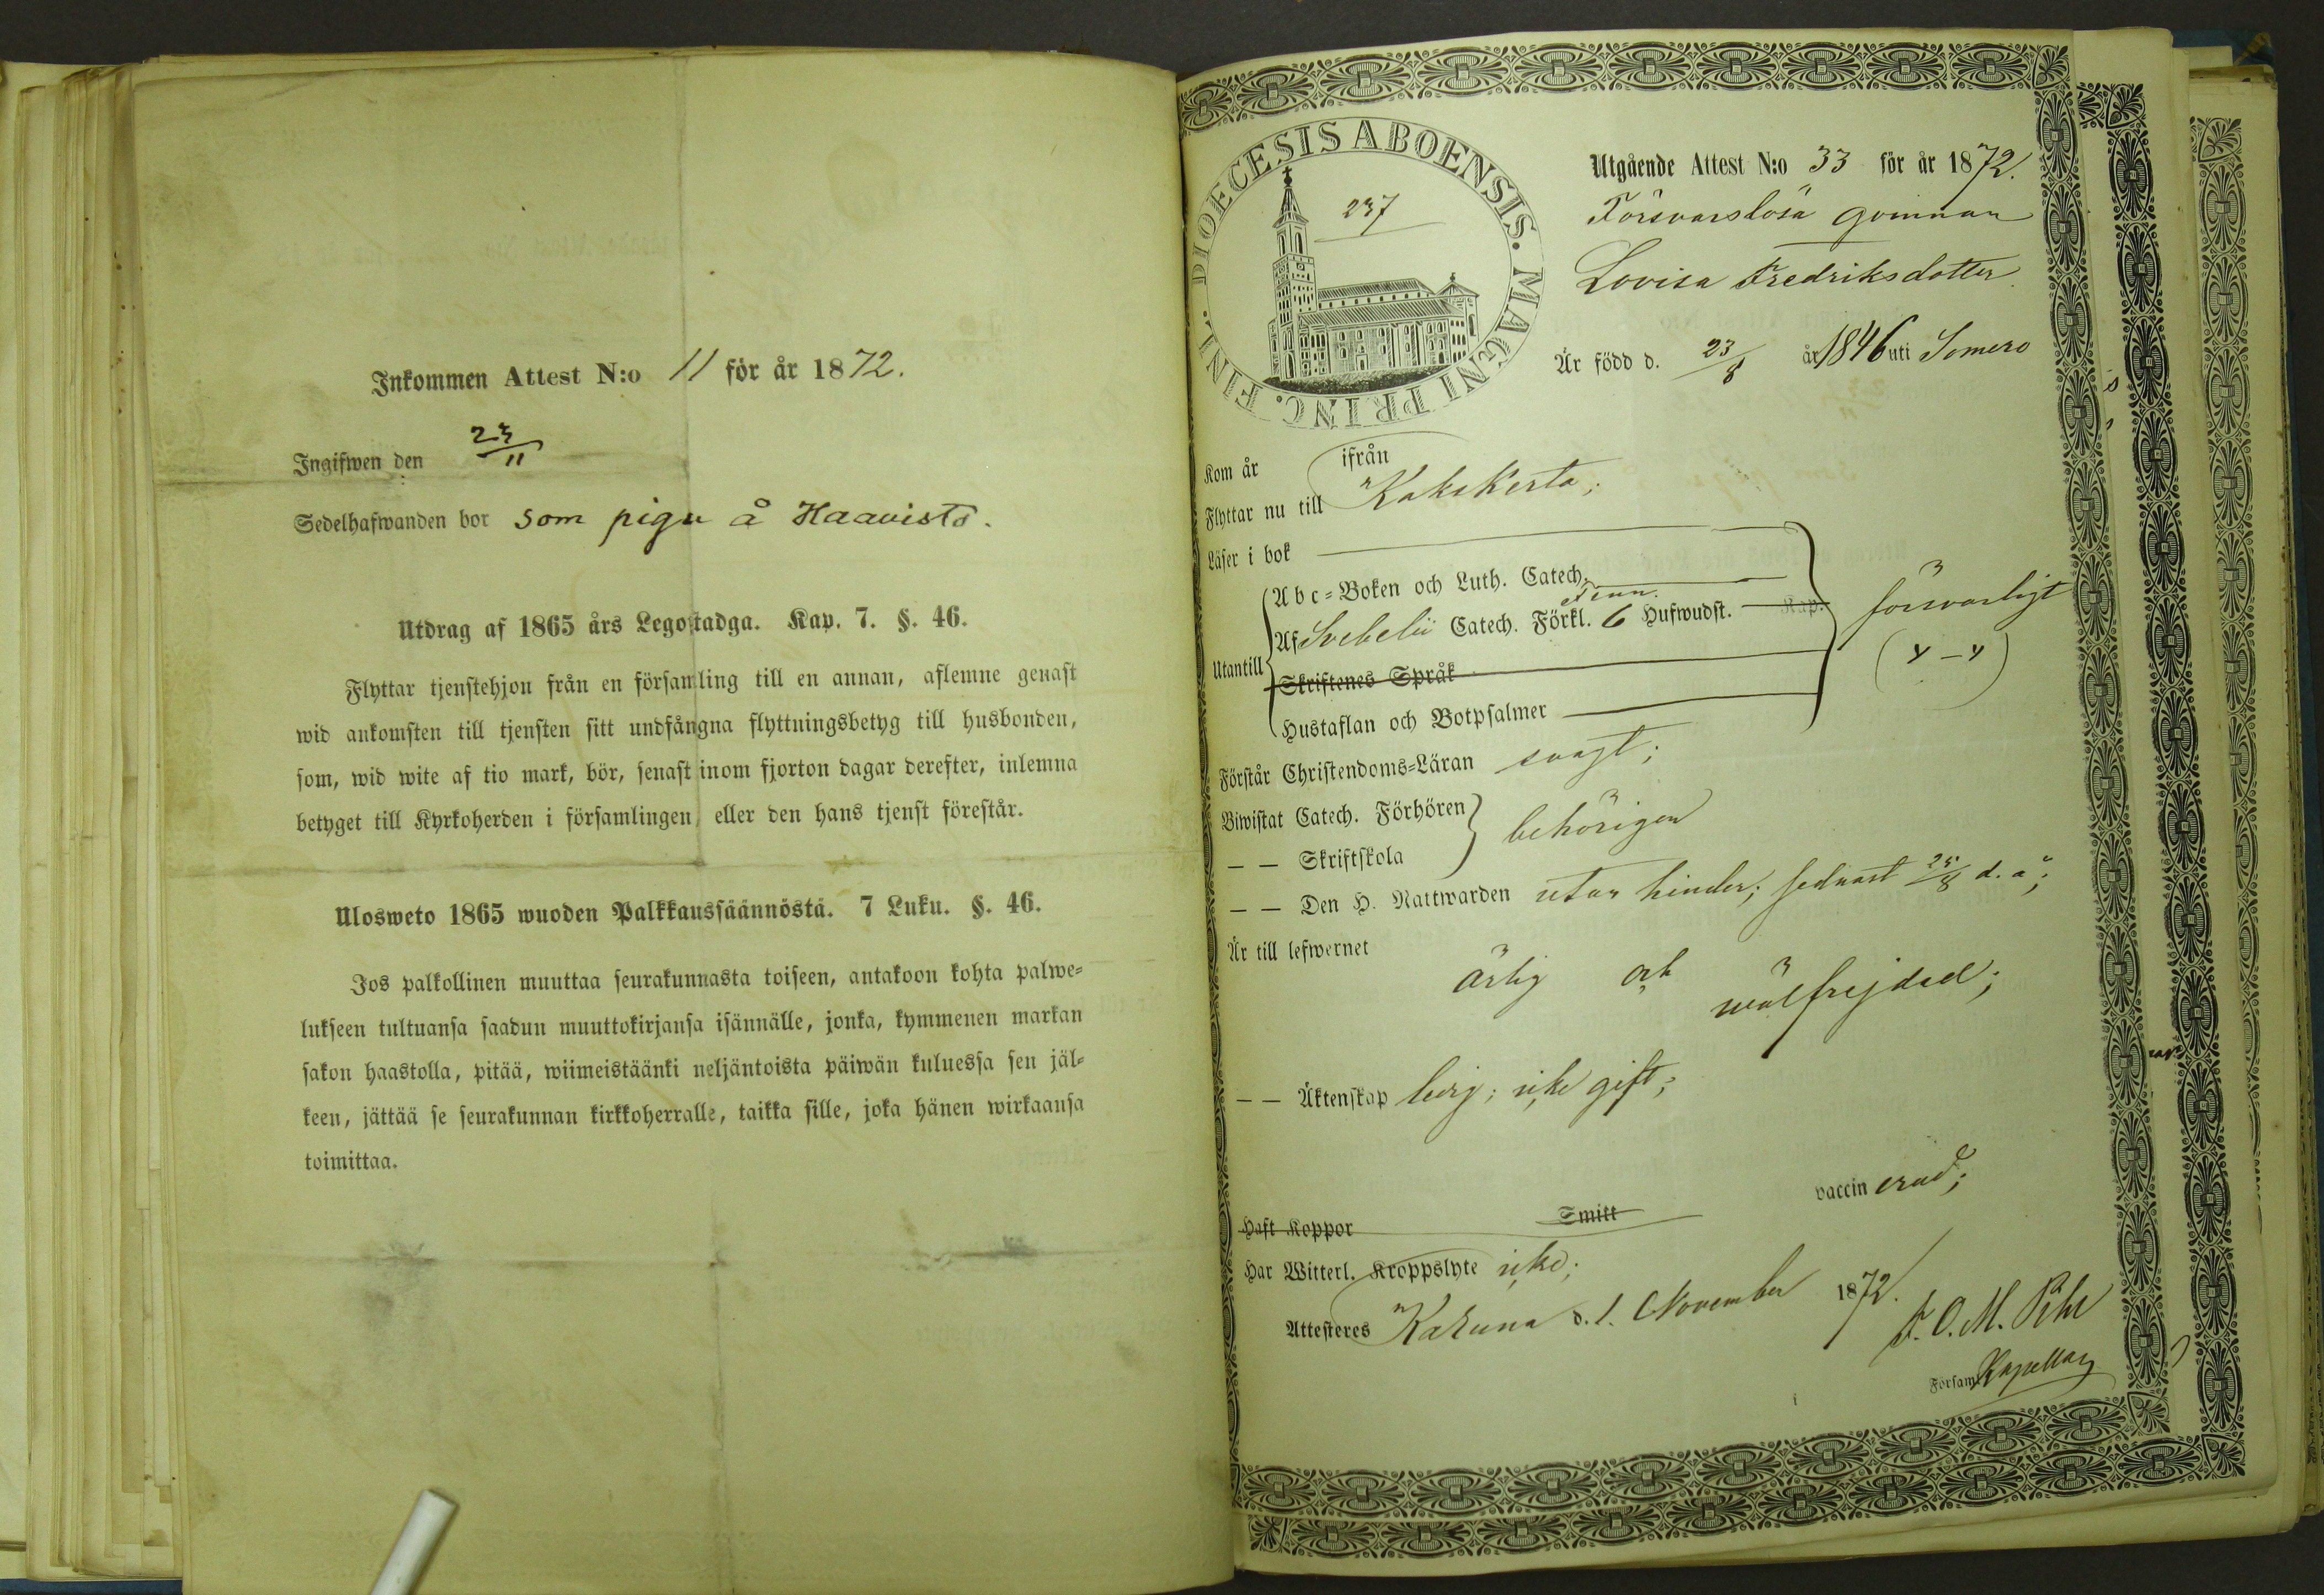 Inkommen Attest N:o 11 för år 1872.
Ingifwen den 23/11
Sedelhafwanden bor som piga å Haavisto.
Utdrag af 1865 års Legostadga. Kap. 7. §. 46.
Flyttar tjenstehjon från en församling till en annan, aflemne genast
wid ankomsten till tjensten sitt undfångna flyttningsbetyg till husbonden,
som, wid wite af tio mark, bör, senast inom fjorton dagar derefter, inlemna
betyget till Kyrkoherden i församlingen, eller den hans tjenst förestår.
Ulosweto 1865 wuoden Palkkaussäännöstä. 7 Luku. §. 46.
Jos palkollinen muuttaa seurakunnasta toiseen, antakoon kohta palwe-
lukseen tultuansa saadun muuttokirjansa isännälle, jonka, kymmenen markan
sakon haastolla, pitää, wiimeistäänki neljäntoista päiwän kuluessa sen jäl-
keen, jättää se seurakunnan kirkkoherralle, taikka sille, joka hänen wirkaansa
toimittaa.
DIOECESIS ABOENSIS. MAGNI PRINC. FINL.
237
Utgående Attest N:o 33 för år 1872.
Försvarslösa qvinnan
Lovisa Fredriksdotter
Är född d. 23/8 år 1846 uti Somero
Kom år ifrån
Flyttar nu till Kakskerta;
Läser i bok
Utantill
Abc-Boken och Luth. Catech.
Finn.
Af Svebelii Catech. Förkl. 6 Hufwudst. Kap.
Skriftenes Språk
Hustaflan och Botpsalmer
försvarligt
(4-4)
Förstår Christendoms-Läran svagt;
Biwistat Catech. Förhören
— — Skriftskola
behörigen
— — Den H. Nattwarden utan hinder; sednast 25/8 d. å;
Är till lefwernet
ärlig och wälfrejdad;
— — Äktenskap ledig; icke gift;
Haft Koppor Smitt vaccinerad;
Har Witterl. Kroppslyte icke;
Attesteres Kakuna d. 1. November 1872.
F. O. M.
Församl Kapellan